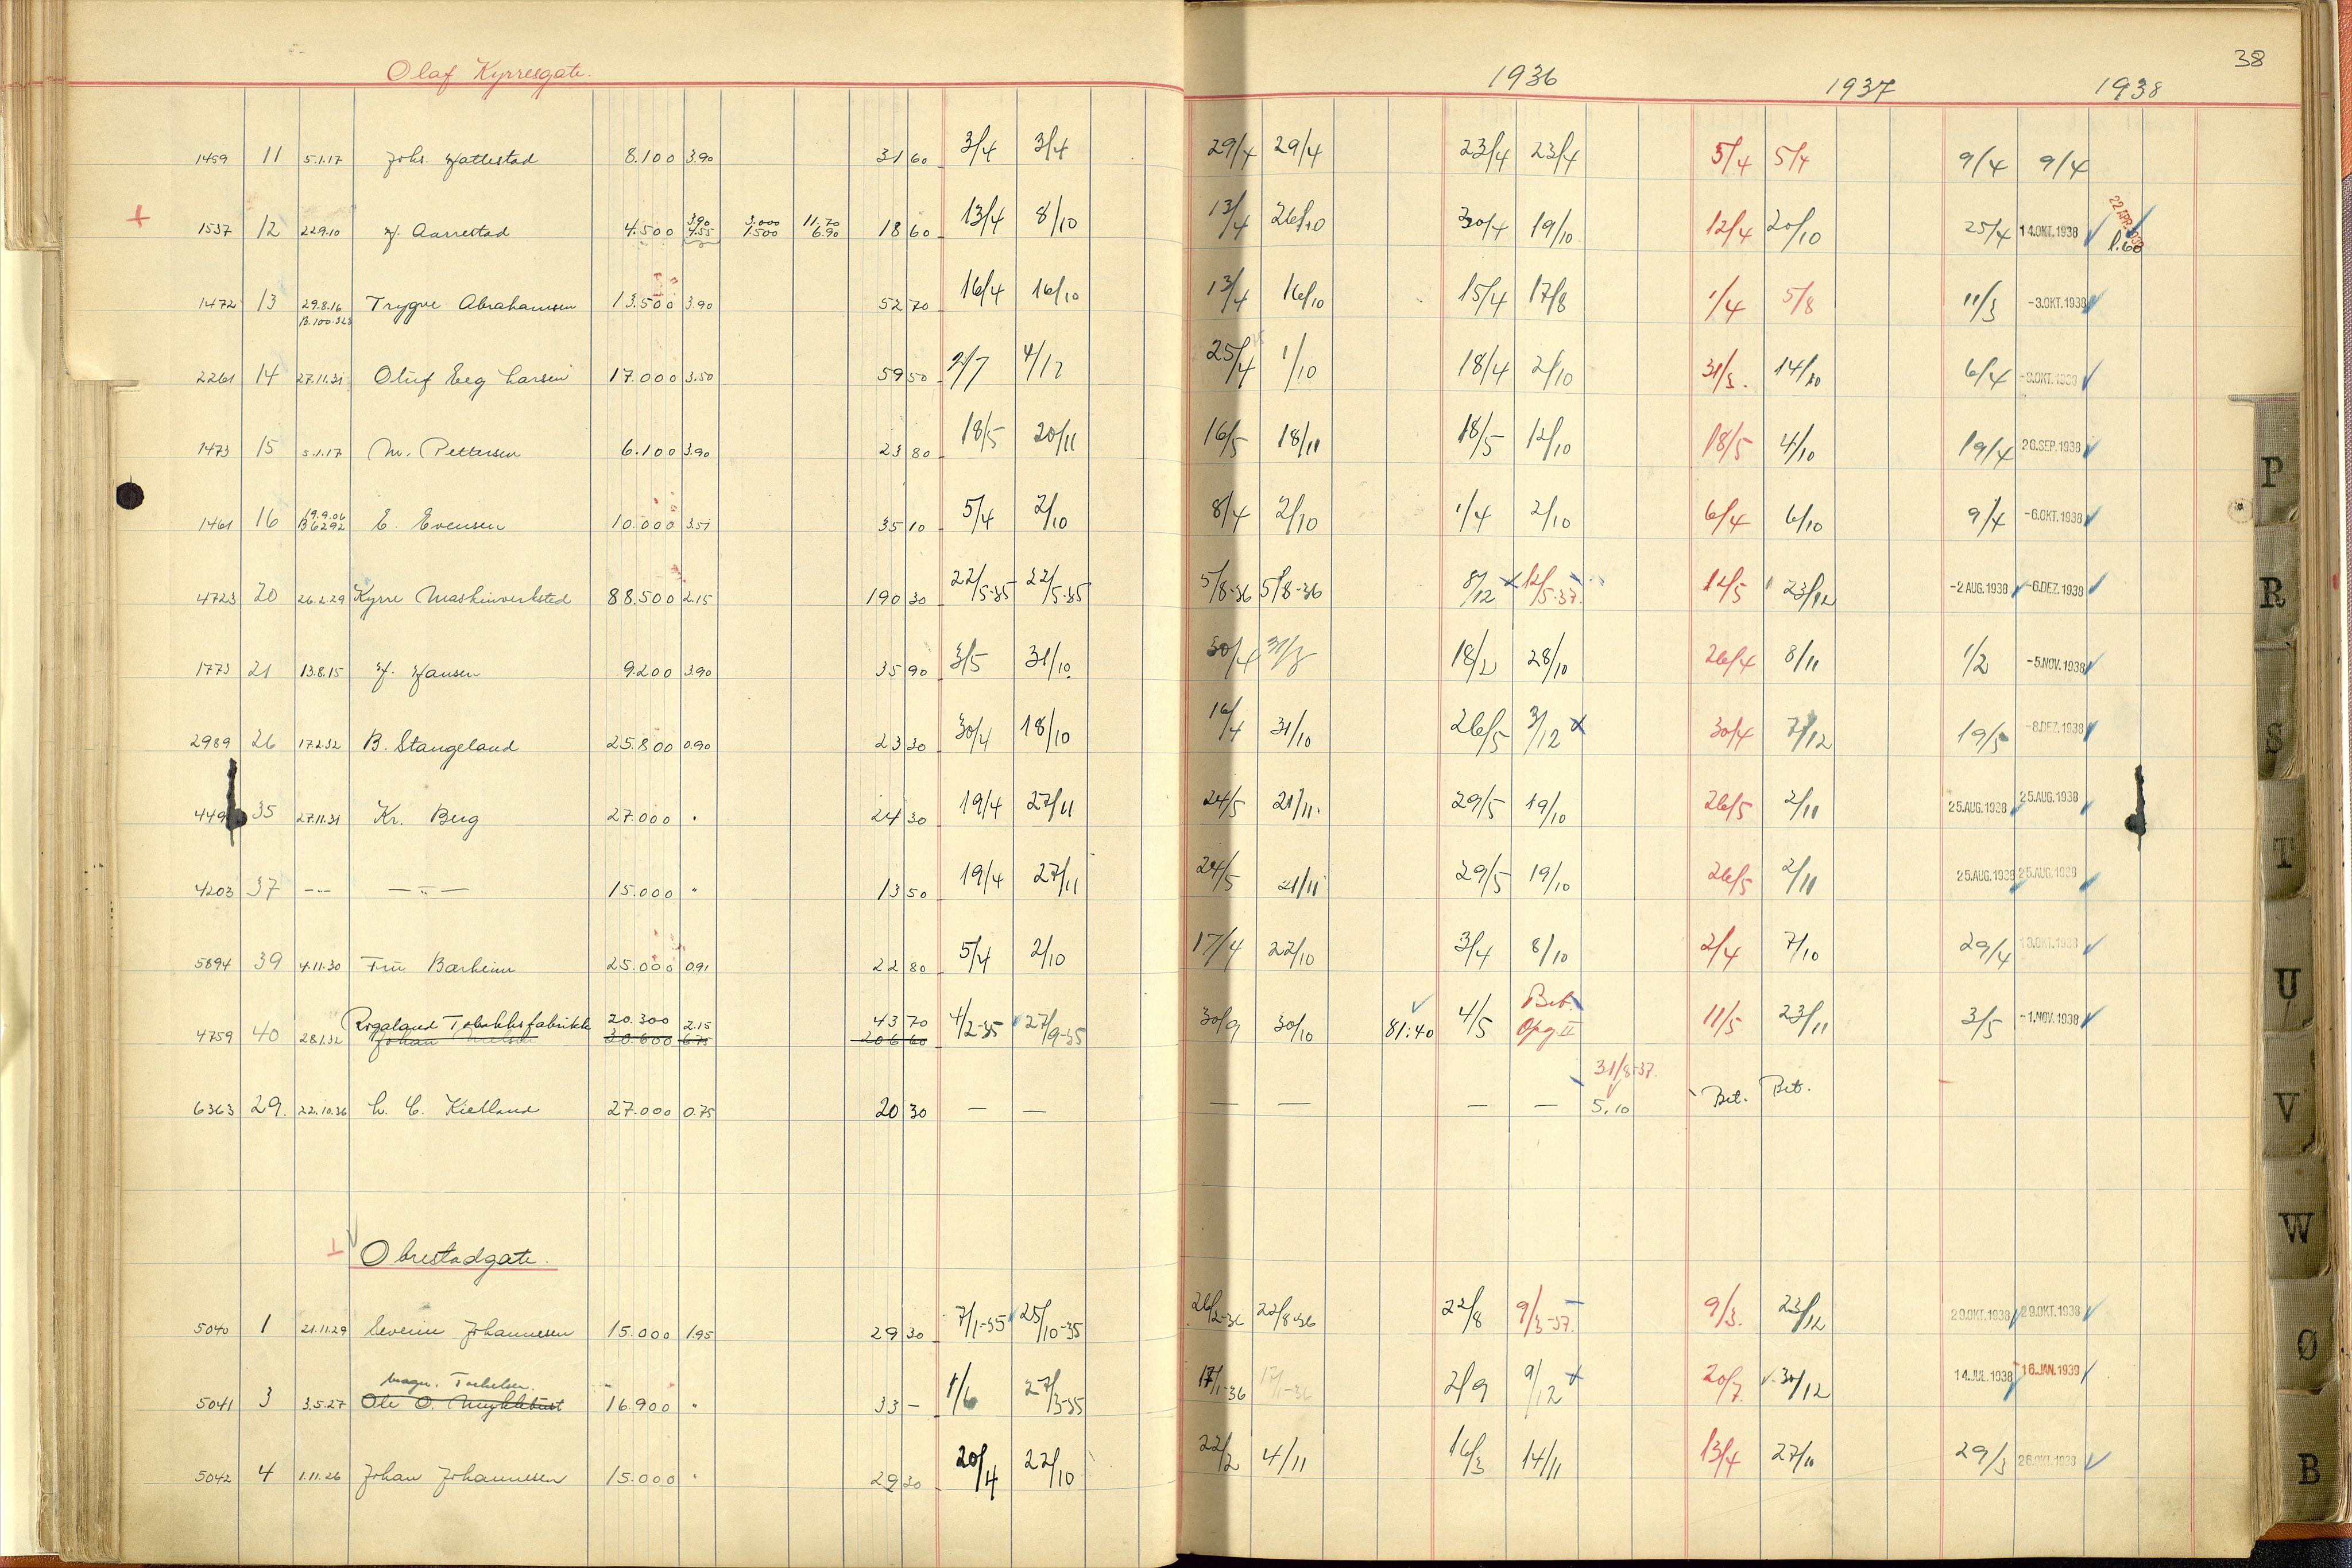 Olaf Kyrresgate.
38
1936 1937 1938
1459 11 5.1.17 Johs. Hattestad 8.100 3.90 31 60 3/4 3/4 29/4 29/4 23/4 23/4 5/4 5/4 9/4 9/4
22 APR. 1939
3.90 3.000 11.70
1537 12 22.9.10 H. Aarrestad 4.500 4.55 1.500 6.90 18 60 13/4 8/10 13/4 26/10 30/4 19/10 12/4 20/10 25/4 14.OKT.1938 1.60
1472 13 29.8.16 Trygve Abrahamsen 13.500 3.90 52 70 16/4 16/10 13/4 16/10 15/4 17/8 1/4 5/8 11/3 -3.OKT.1938
B.100.323
2261 14 27.11.31 Oluf Eeg Larsen 17.000 3.50 59 50 2/7 4/12 25/4 1/10 18/4 2/10 31/3. 14/10 6/4 -8.OKT.1938
1473 15 5.1.17 M. Pettersen 6.100 3.90 23 80 18/5 20/11 16/5 18/11 18/5 12/10 18/5 4/10 19/4 26.SEP.1938
19.9.06
1461 16 B6292 E. Evensen 10.000 3.51 35 10 5/4 2/10 8/4 2/10 1/4 2/10 6/4 6/10 9/4 -6.OKT.1938
4723 20 26.2.29 Kyrre Maskinverksted 88.500 2.15 190 30 22/5-35 22/5-35 5/8-36 5/8-36 8/12 12/5-37. 12/5 23/12 -2 AUG.1938 -6.DEZ.1938
1773 21 13.8.15 H. Hansen 9.200 3.90 35 90 3/5 31/10 30/4 31/8 18/2 28/10 26/4 8/11 1/2 -5.NOV.1938
2989 26 17.2.32 B. Stangeland 25.800 0.90 23 30 30/4 18/10 16/4 31/10 26/5 3/12 x 30/4 7/12 19/5 -8.DEZ.1938
449 35 27.11.31 Kr. Berg 27.000 " 24 30 19/4 27/11 24/5 21/11 29/5 19/10 26/5 2/11 25.AUG.1938 25.AUG.1938
4203 37 --- — " — 15.000 " 13 50 19/4 27/11 24/5 21/11 29/5 19/10 26/5 2/11 25.AUG.1938 25.AUG.1938
5894 39 4.11.30 Fru Barheim 25.000 0.91 22 80 5/4 2/10 17/4 22/10 3/4 8/10 2/4 7/10 29/4 13.OKT.1938
Rogaland Tobakksfabrikk 20.300 2.15 43 70 4/2-35 27/9-35 30/9 30/10 81.40 4/5 Bet. Opg. II 11/5 23/11 3/5 -1.NOV.1938
4759 40 28.1.32 Johan Nielsen 30.600 6.75 206 60
31/8-37.
6363 29. 22.10.36 L. C. Kielland 27.000 0.75 20 30 — — — — — — 5.10 Bet. Bet.
Obrestadgate.
5040 1 21.11.29 Severin Johannesen 15.000 1.95 29 30 7/1-35 25/10-35 26/2-36 22/8-36 22/8 9/3-37. 9/3. 23/12 29.OKT.1938 29.OKT.1938
Torkelsen
5041 3 3.5.27 Ole O. Myklebust 16.900 " 33 — 1/6 27/3-35 17/1-36 17/1-36 2/9 9/12 x 20/7. 30/12 14.JUL.1938 16.JAN.1939
5042 4 1.11.26 Johan Johannesen 15.000 " 29 30 20/4 22/10 22/2 4/11 16/3 14/11 13/4 27/10 29/3 26.OKT.1938
P
R
S
T
U
V
W
Ø
B